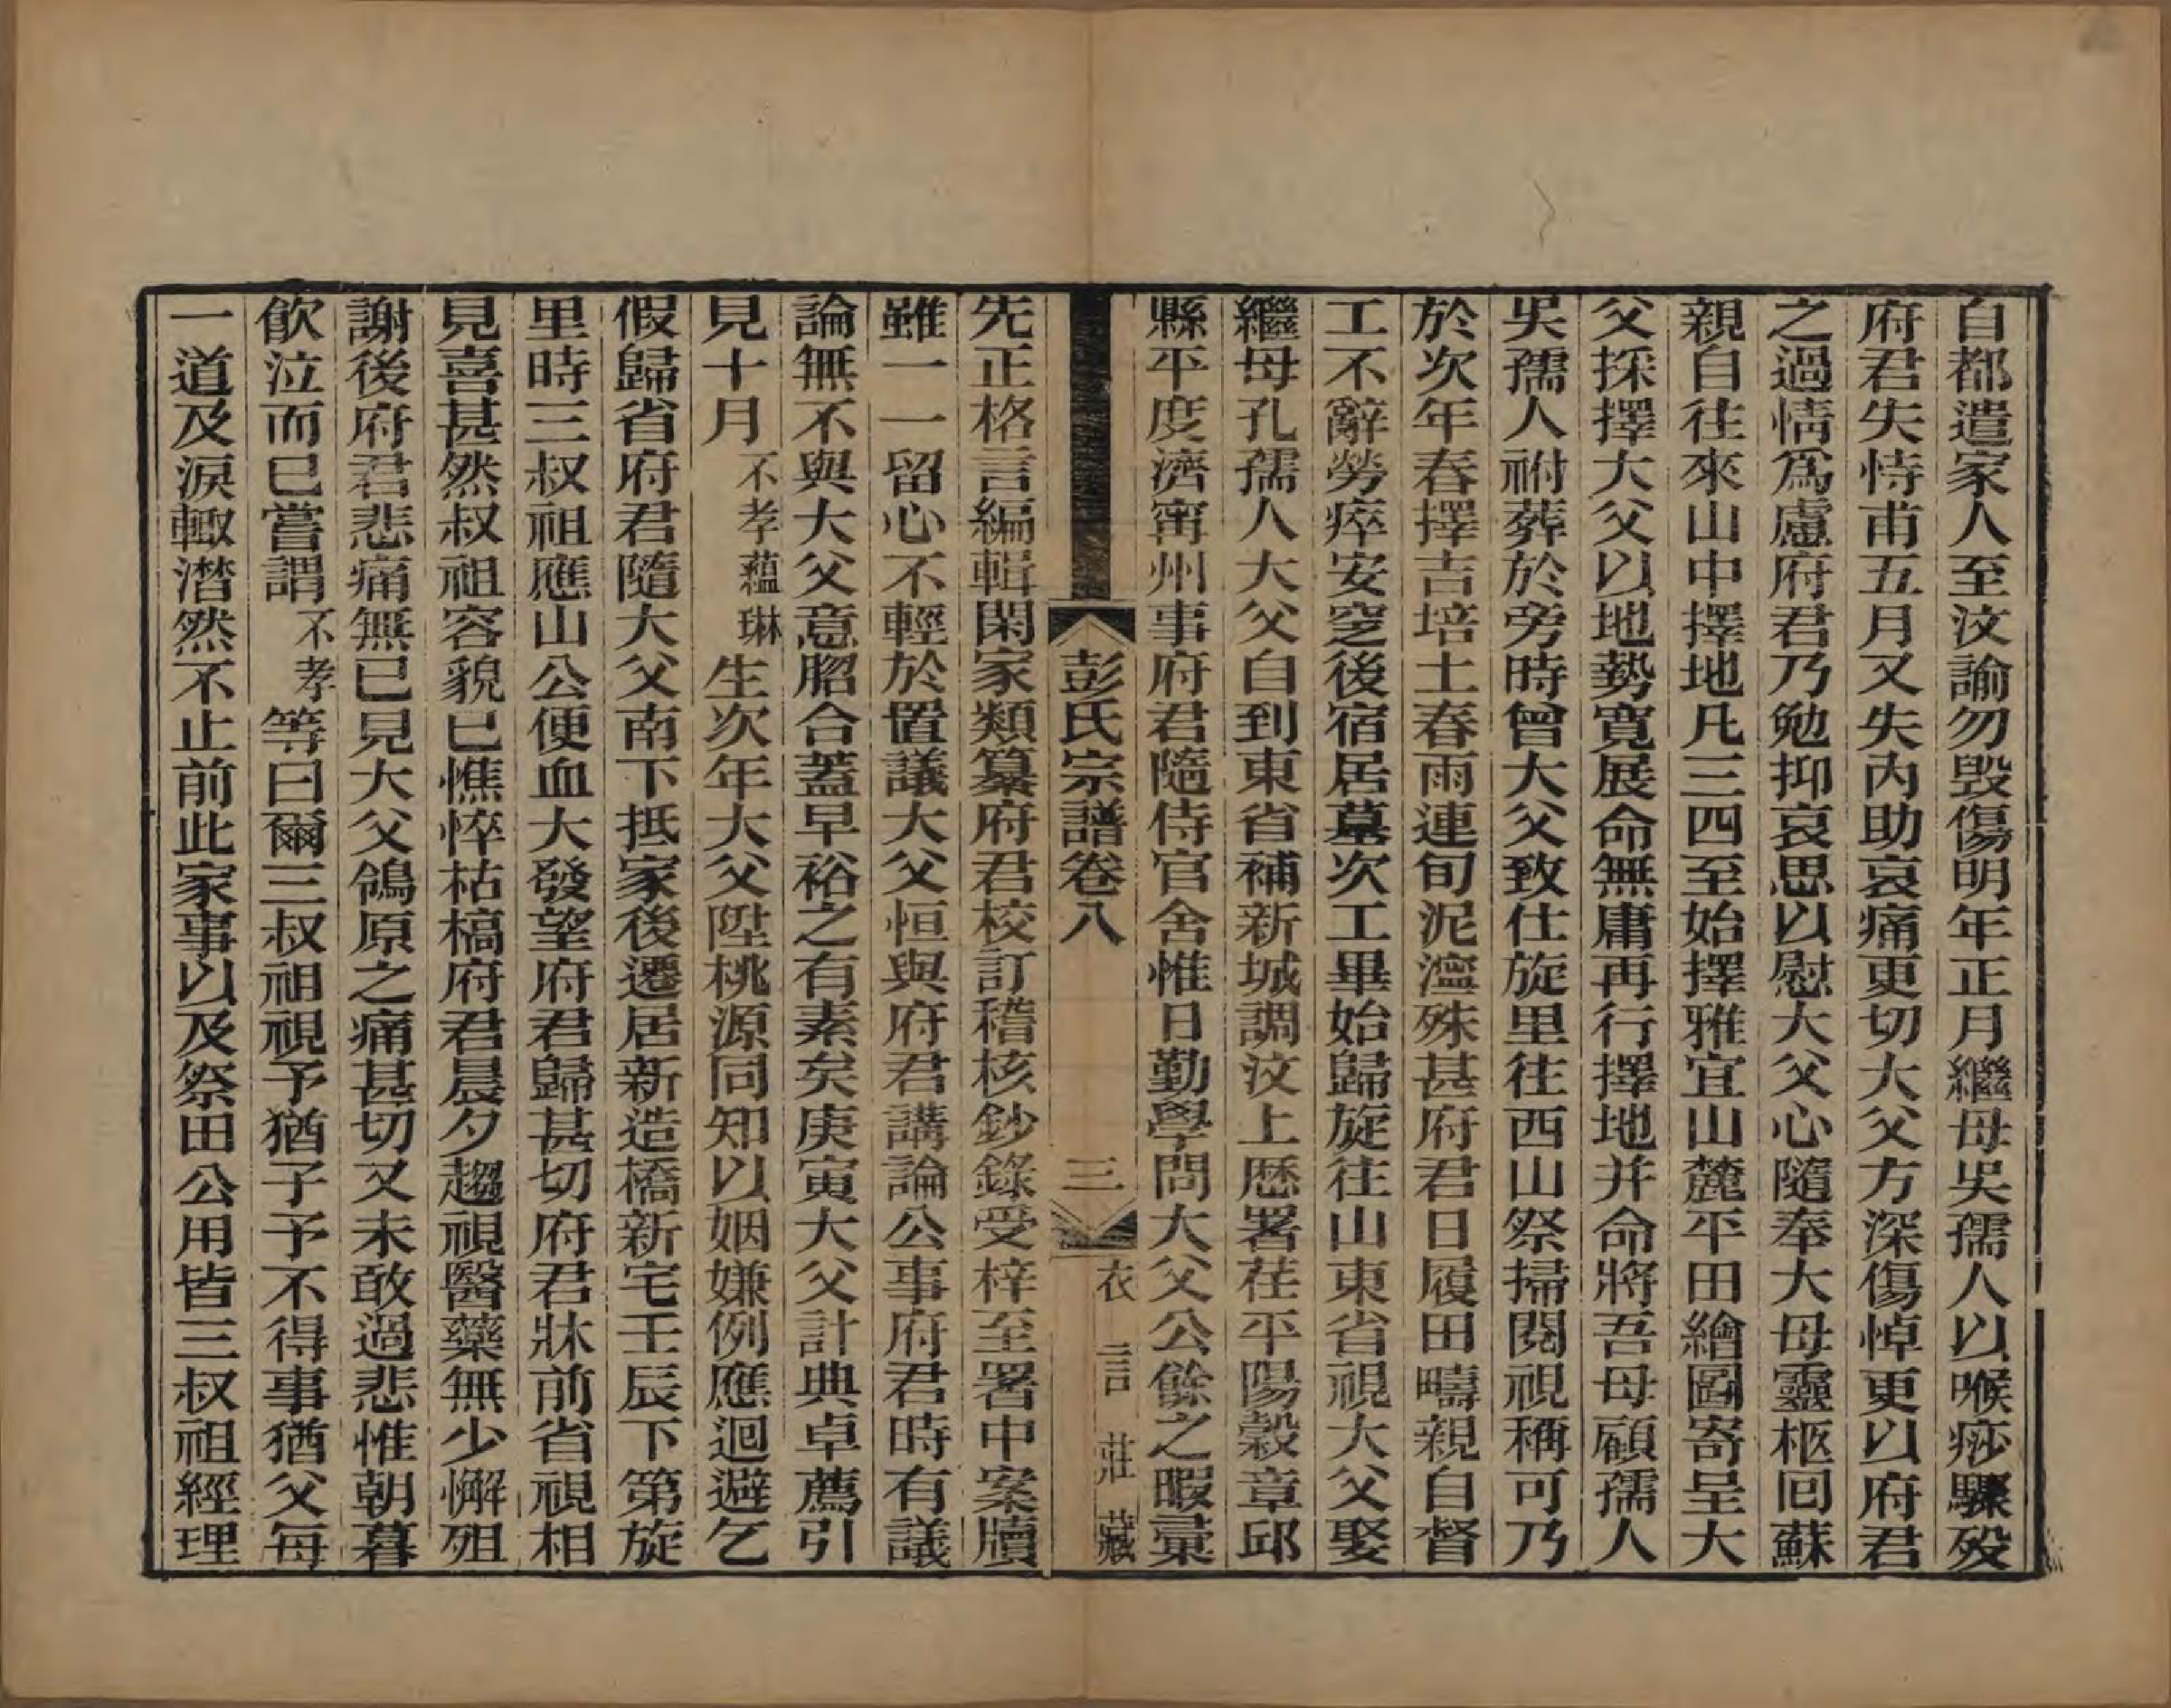 自都遣家人至汶諭勿毀傷明年正月繼母吳孺人以喉痧驟歿
府君失恃甫五月又失內助哀痛更切大父方深傷悼更以府君
之過情爲慮府君乃勉抑哀思以慰大父心隨奉大母靈柩回蘇
親自往來山中擇地凡三四至始擇雅宜山麓平田繪圖寄呈大
父採擇大父以地勢寬展命無庸再行擇地并命將吾母顧孺人
吳孺人祔葬於旁時曾大父致仕旋里往西山祭掃閱視稱可乃
於次年春擇吉培土春雨連旬泥濘殊甚府君日履田疇親自督
工不辭勞瘁安窆後宿居墓次工畢始歸旋往山東省視大父娶
繼母孔孺人大父自到東省補新城調汶上歷署荏平陽穀章邱
縣平度濟甯州事府君隨侍官舍惟日勤學問大父公餘之暇彙
彭氏宗譜卷八
三
衣言莊藏
先正格言編輯閑家類纂府君校訂稽核鈔錄受梓至署中案牘
雖一一留心不輕於置議大父恒與府君講論公事府君時有議
論無不與大父意脗合蓋早裕之有素矣庚寅大父計典卓薦引
見十月不孝蘊琳生次年大父陞桃源同知以姻嫌例應迴避乞
假歸省府君隨大父南下抵家後遷居新造橋新宅壬辰下第旋
里時三叔祖應山公便血大發望府君歸甚切府君牀前省視相
見喜甚然叔祖容貌已憔悴枯槁府君晨夕趨視醫藥無少懈殂
謝後府君悲痛無已見大父鴒原之痛甚切又未敢過悲惟朝暮
飲泣而已嘗謂不孝等曰爾三叔祖視予猶子予不得事猶父每
一道及淚輙潸然不止前此家事以及祭田公用皆三叔祖經理